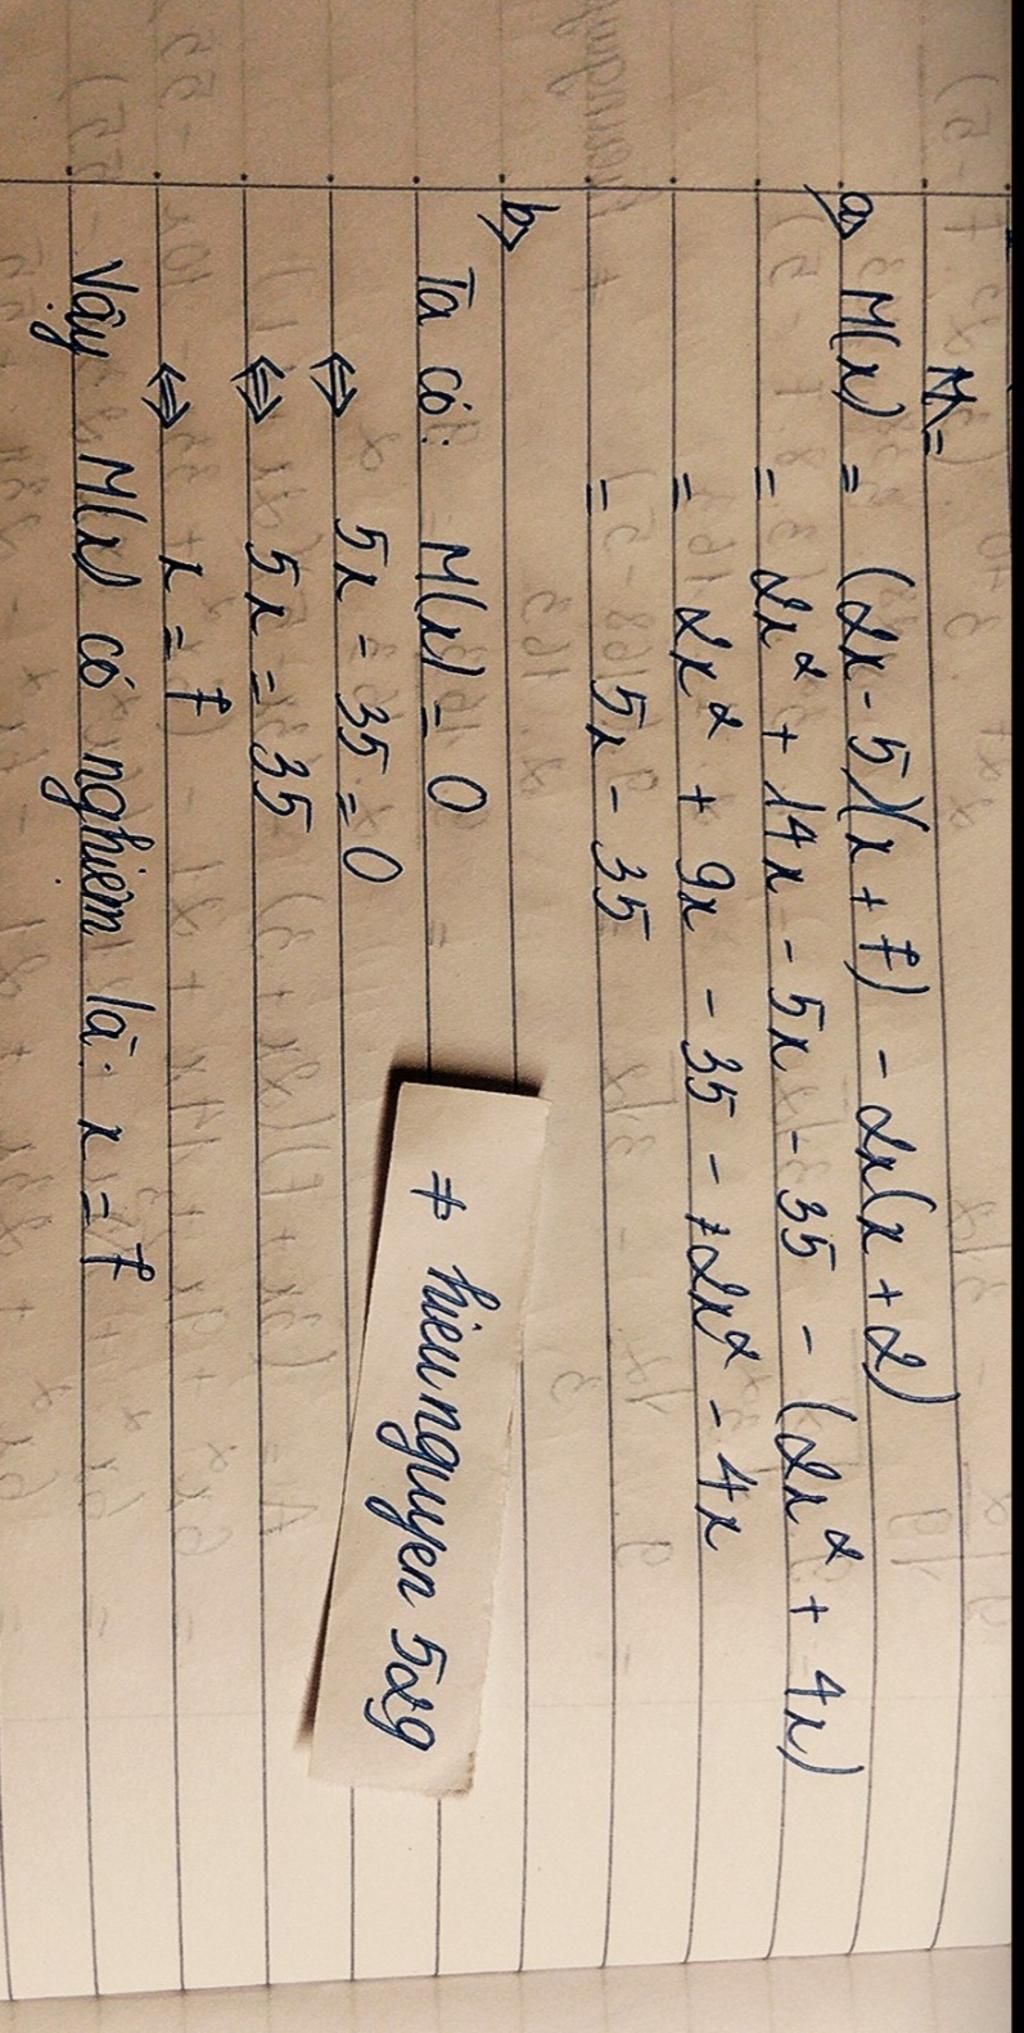 M =
a, M(x) = (2x - 5)(x + 7) - 2x(x + 2)
= 2x² + 14x - 5x - 35 - (2x² + 4x)
= 2x² + 9x - 35 - 2x² - 4x
= 5x - 35
b,
Ta có: M(x) = 0
⇔ 5x - 35 = 0
⇔ 5x = 35
⇔ x = 7
Vậy M(x) có nghiệm là: x = 7
≠ hieunguyen 529